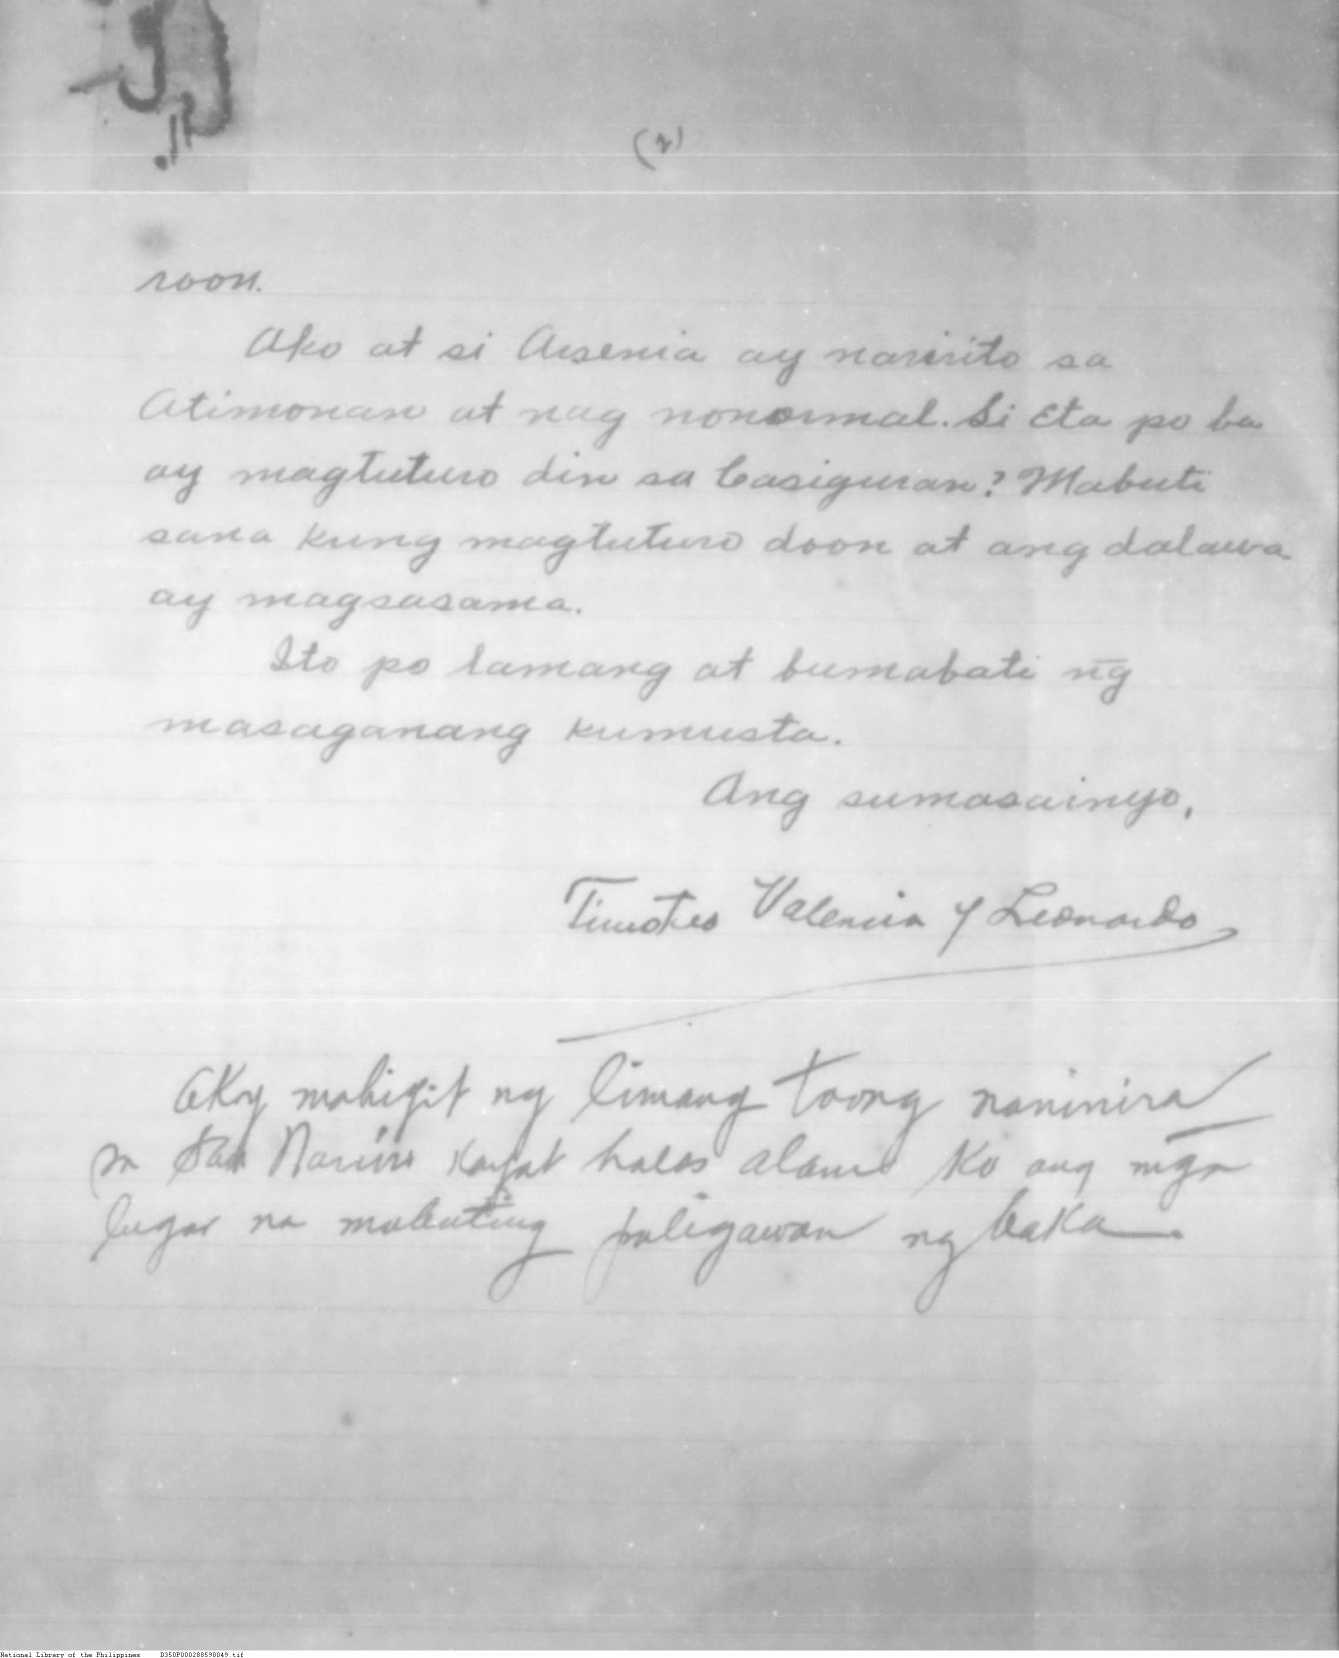 (2)
roon.
Ako at si Arsenia ay naririto sa
Atimonan at nag nonormal. Si Eta po ba
ay magtuturo din sa Casiguran? Mabuti
sana kung magtuturo doon at ang dalawa
ay magsasama.
Ito po lamang at bumabati n̄g
masaganang kumusta.
Ang sumasainyo,
Timoteo Valencia y Leonardo
Akoy mahigit ng limang taong naninira
sa San Narciso kayat halos alam ko ang mg̃a
lugar na mabuting paligawan ng baka.
National Library of the Philippines D350P000288598049.tif